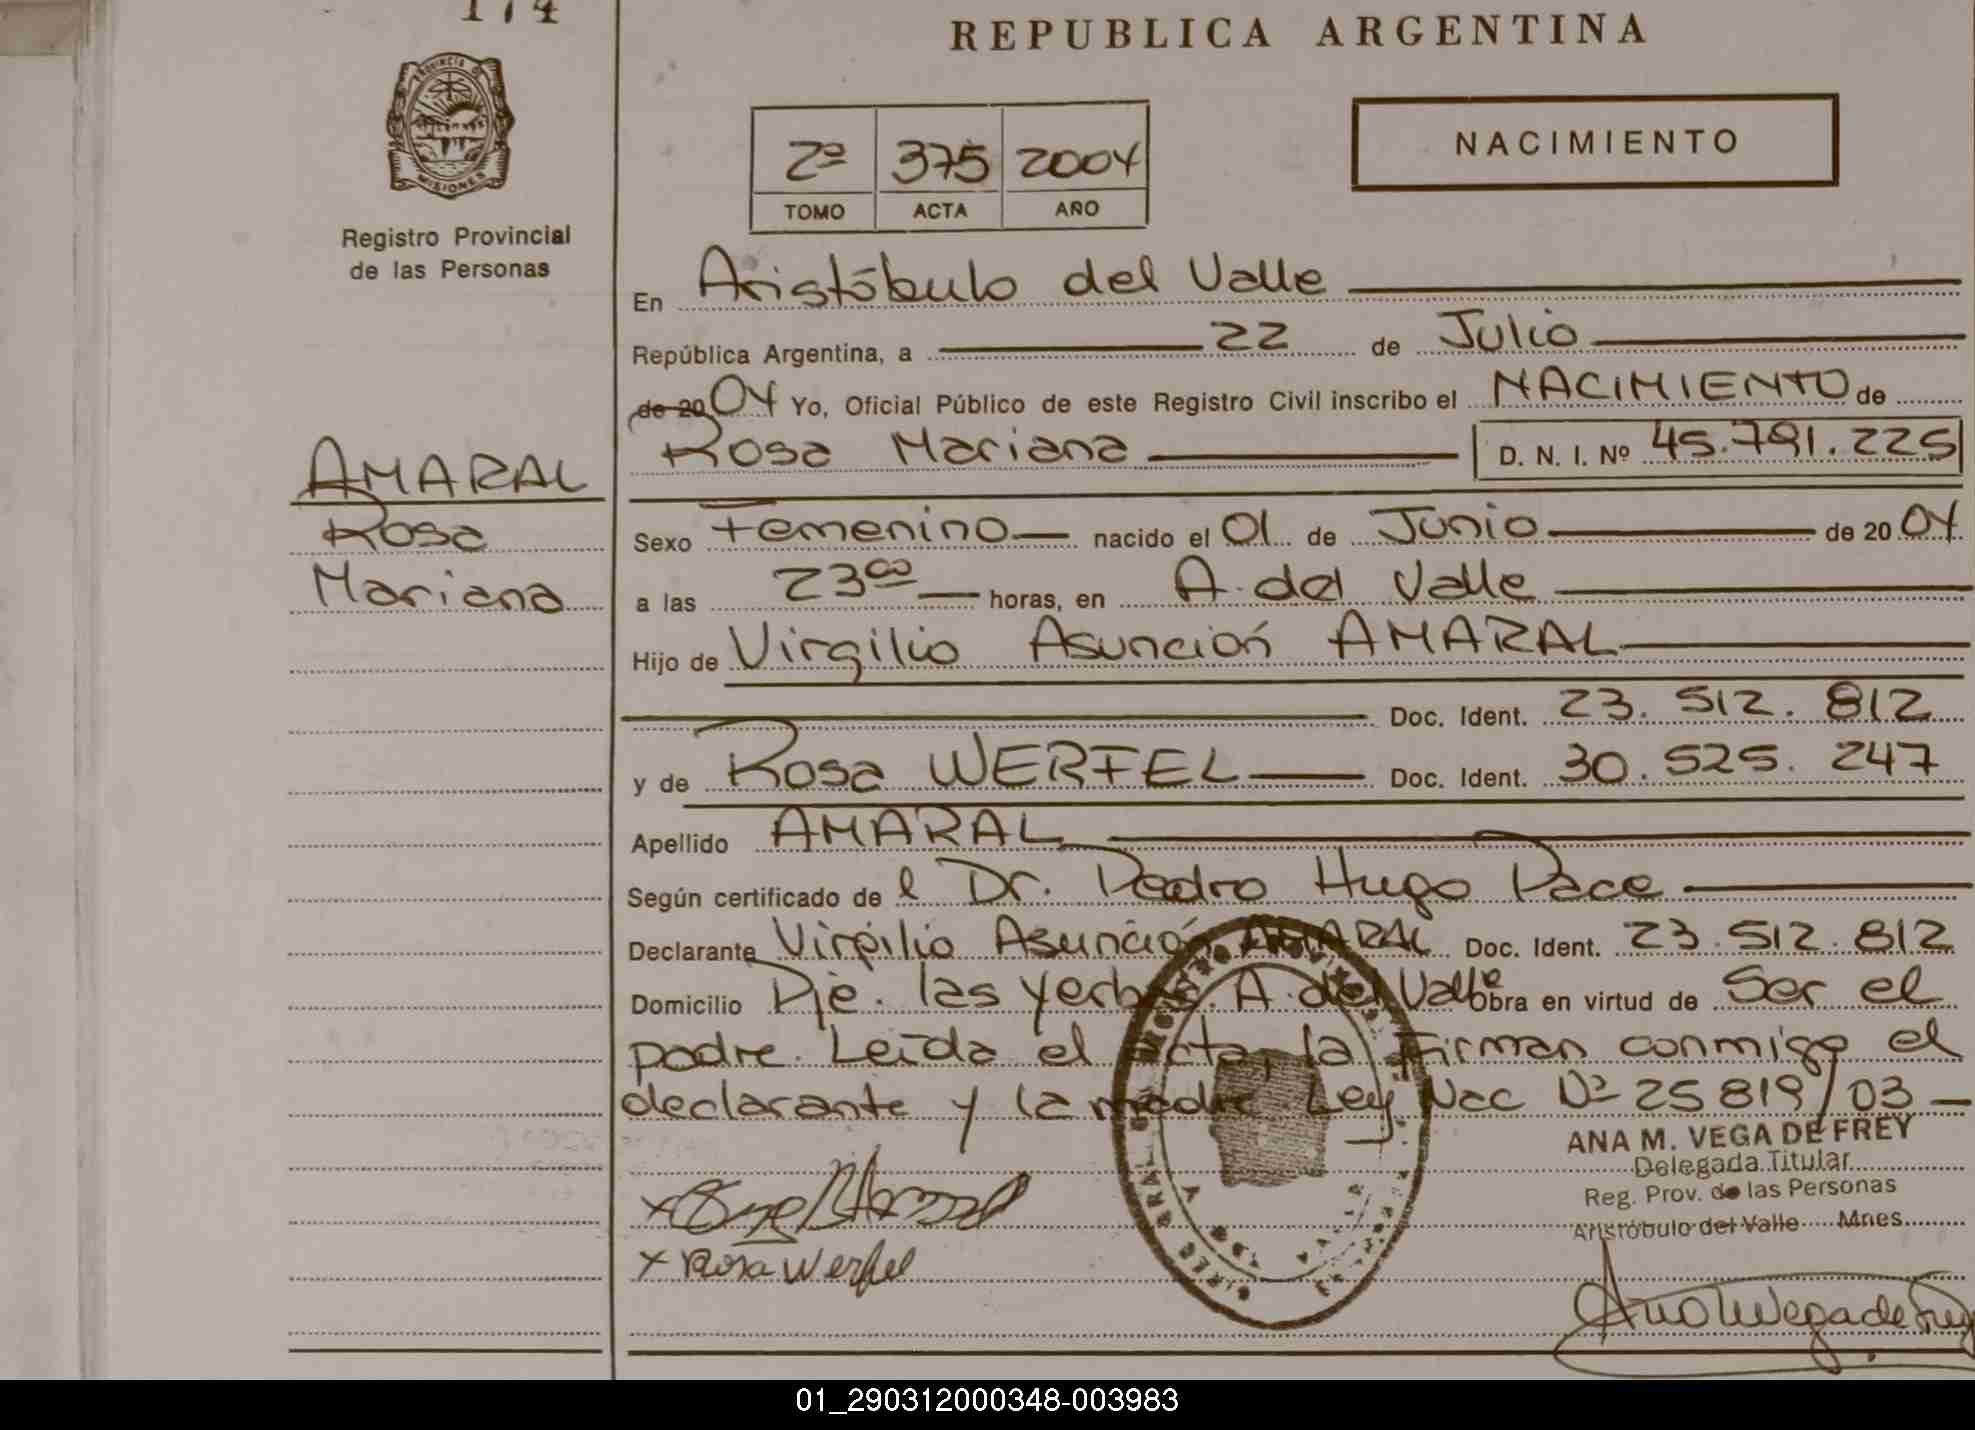 174
REPUBLICA ARGENTINA
PROVINCIA DE
MISIONES
Registro Provincial
de las Personas
2º 375 2004
TOMO ACTA AÑO
NACIMIENTO
AMARAL
Rosa
Mariana
En Aristóbulo del Valle
República Argentina, a 22 de Julio
de 2004 Yo, Oficial Público de este Registro Civil inscribo el NACIMIENTO de
Rosa Mariana D. N. I. Nº 45.791.225
Sexo Femenino nacido el 01 de Junio de 2004
a las 23 00 horas, en A. del Valle
Hijo de Virgilio Asunción AMARAL
Doc. Ident. 23.512.812
y de Rosa WERFEL Doc. Ident. 30.525.247
Apellido AMARAL
Según certificado de l Dr. Pedro Hugo Pace
Declarante Virgilio Asunción AMARAL Doc. Ident. 23.512.812
Domicilio Pje. las yerbas. A. del Valle Obra en virtud de Ser el
padre. Leída el acta, la firman conmigo el
declarante y la madre Ley Nac Nº 25819/03
ANA M. VEGA DE FREY
Delegada Titular
Reg. Prov. de las Personas
Aristóbulo del Valle Mnes
x
x Rosa Werfel
Ana M Vega de Frey
01_290312000348-003983